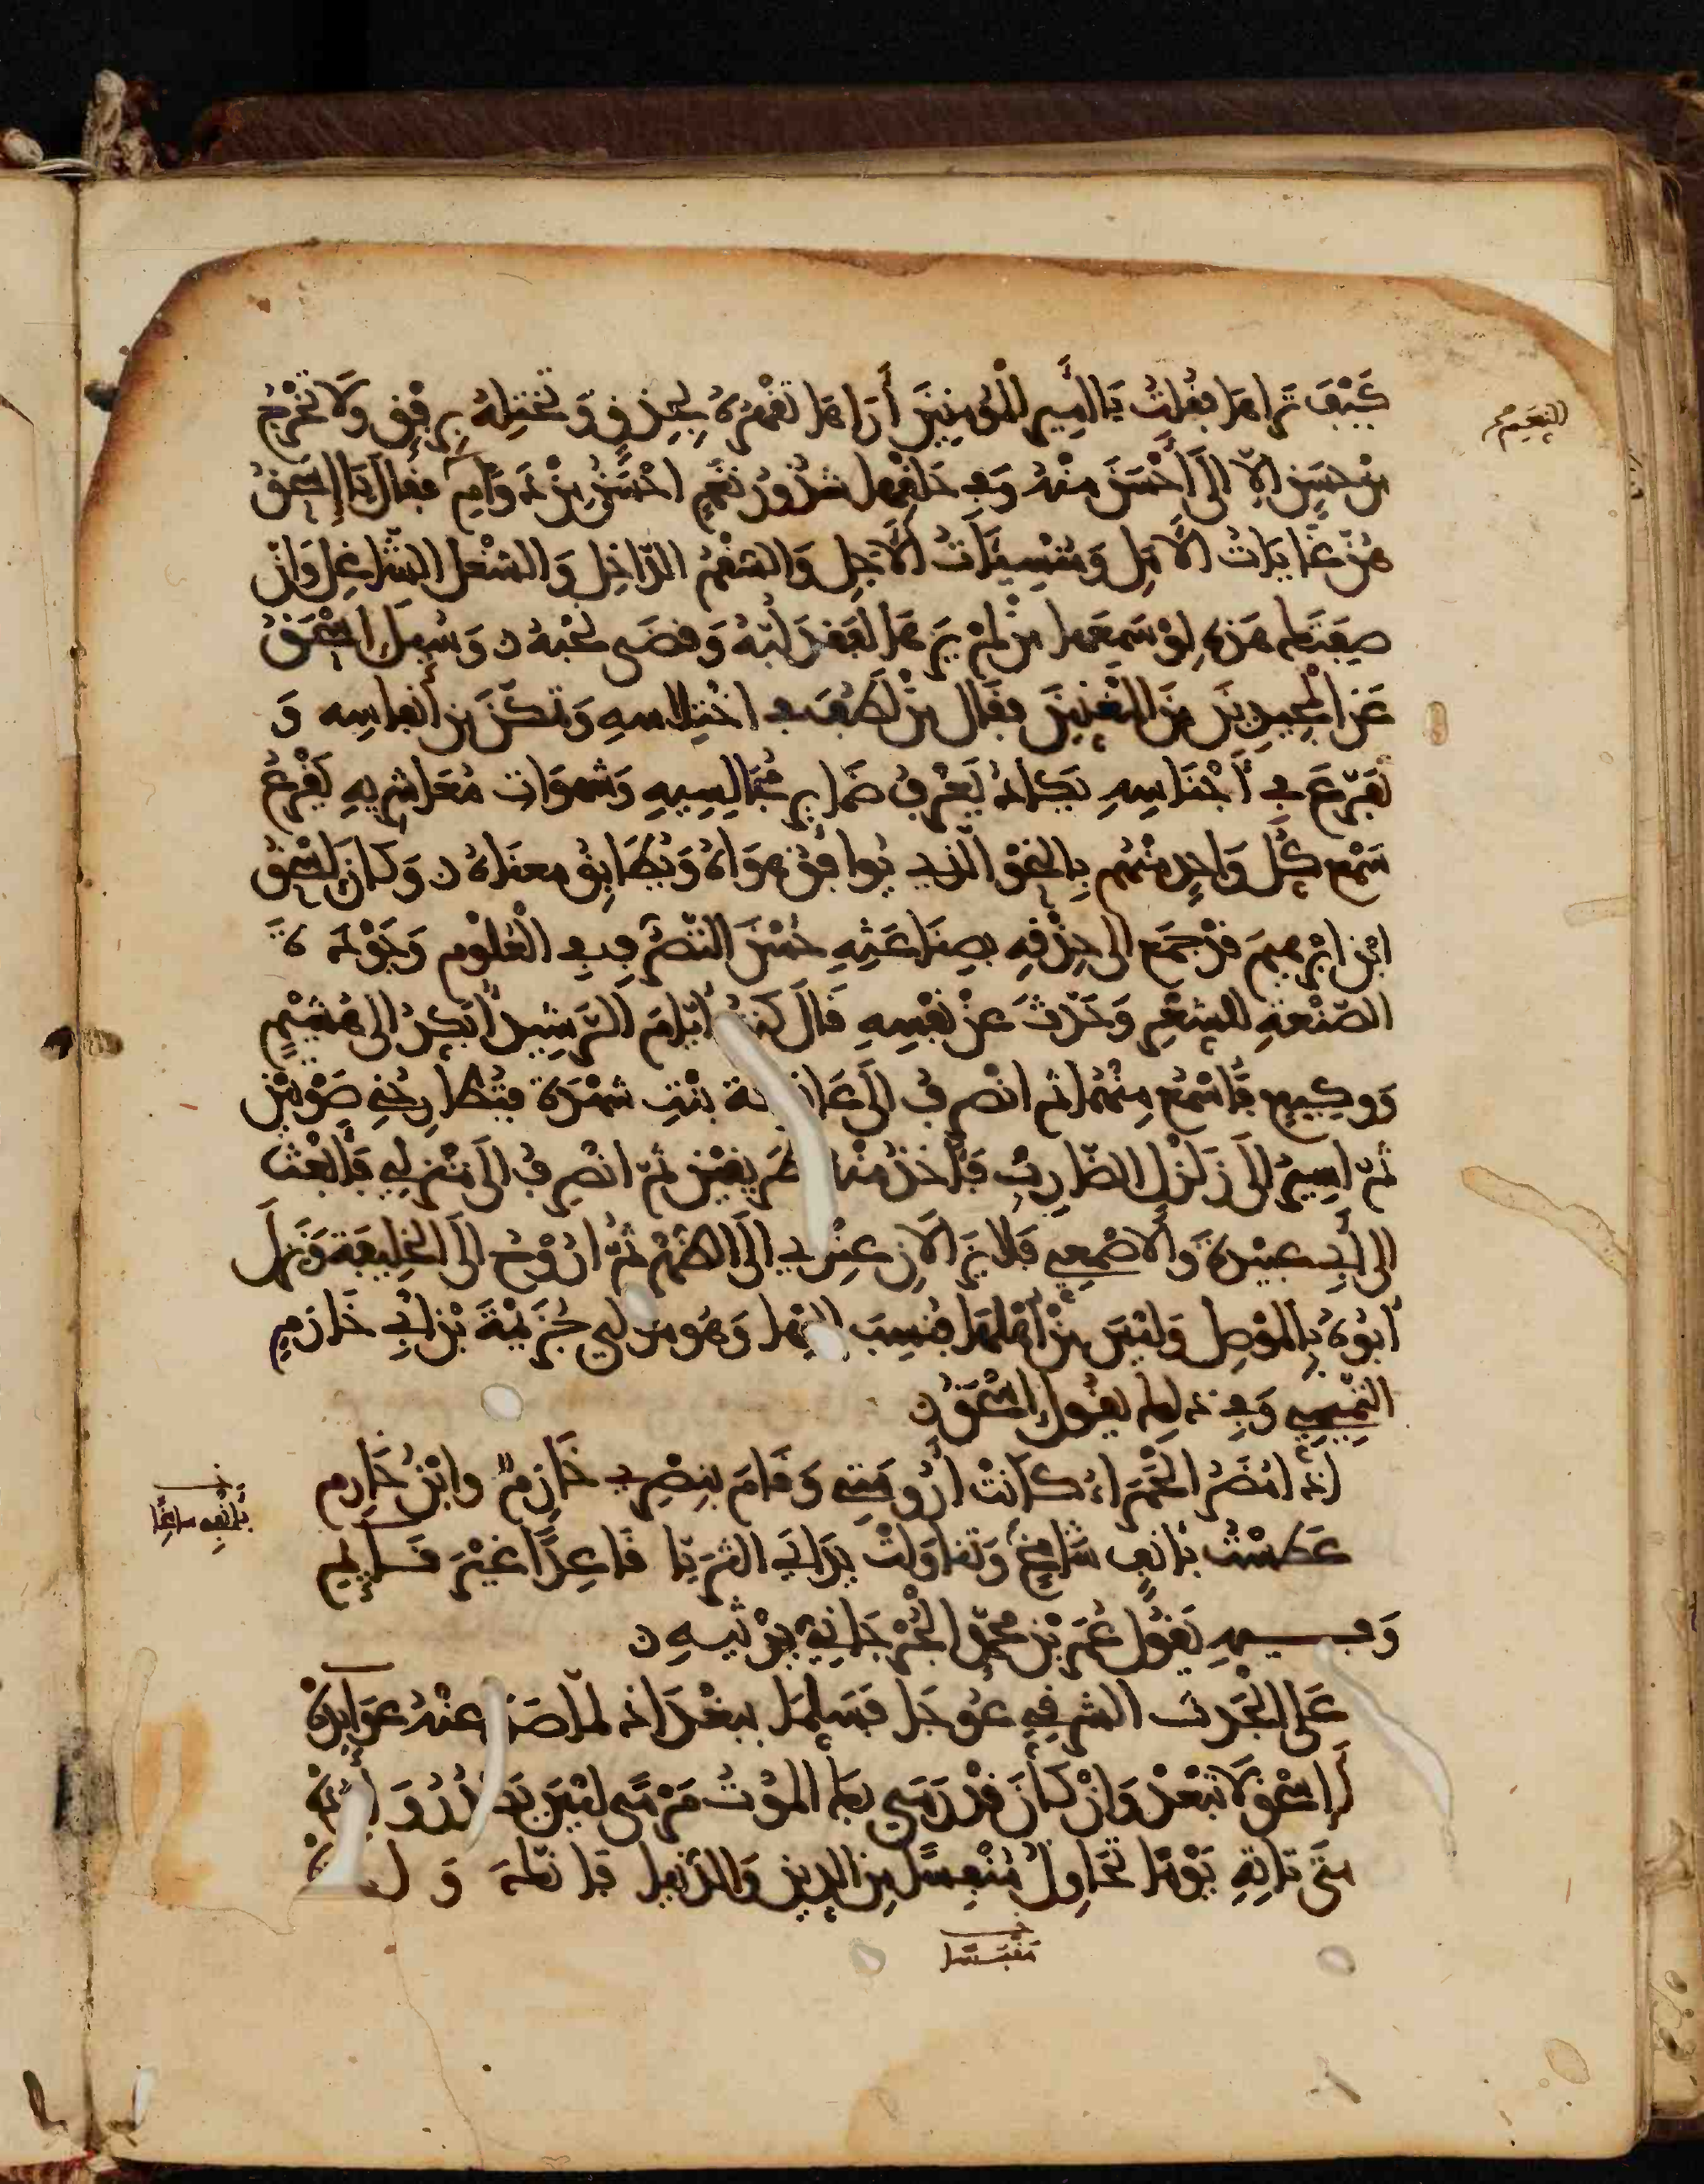 كَيْفَ تَراهَا فقُلتُ يَا أَمير المُؤمنِينَ أَرَاهَا تَقْهَرُهُ بِحِذقٍ وَتَخْتِلُهُ بِرِفْقٍ وَلَا تَخْرُجُ
مِنْ حَسَنٍ إلّا إلَى أَحْسَنَ مِنْهُ وَفِي حَلقِهَا شُذُورُ نَغَمٍ احْسَنُ مِنْ دَوَامِ فقالَ يَا إسْحَقُ
هُنَّ غَايَاتُ الأَمَلِ وَمُنْسِيَاتُ الأَجَلِ وَالسُّقْمُ الدَّاخِلُ وَالشُّغْلُ الشَّاغِلُ وَإنْ
صِفَتَكَ هَذِهِ لَوْ سَمِعَهَا مَنْ لَمْ يَرَهَا لَفَقَدَ لُبَّهُ وَقَضَى نَحْبَهُ ن وَسُئِلَ إسْحَقُ
عَنِ المُجِيدِينَ مِنَ المُغَنِّينَ فقَالَ مَنْ لَطُفَ فِي اخْتِلَاسِهِ وَتَمَكَّنَ مِن أَنفاسِه وَ
تَفَرَّعَ فِي أَجْنَاسِهِ يَكَادُ يَعْرِفُ ضَمَايِر مُجَالِسِيهِ وَشَهوَاتِ مُعَاشِرِيهِ يَقْرَعُ
سَمْع كُل وَاحِدٍ مِنْهُم بِالنحْوِ الّذِي يُوَافِقُ هَوَاهُ وَيُطَابِقُ معنَاهُ ن وَكَانَ إسْحَقُ
ابْنُ ابْرهِيمَ قَدْ جَمَع إلى حِذْقِهِ بِصِنَاعَتِهِ حُسْنَ التَّصَرُّفِ فِي العُلُومِ وَجَوْدَةَ
الصَّنْعَةِ لِلشِّعْرِ وَحَدَّثَ عَنْ نَفْسِهِ قَالَ كُنْتُ أيّامَ الرَّشِيدِ أُبَكِّرُ إلى هُشَيْمٍ
وَوَكِيعٍ فَأَسْمَعُ مِنْهُمَا ثم انْصَرِفُ إلَى عَاتِكَة بِنْتِ شُهْدَة فتُطَارِحُنِي صَوْتَيْنِ
ثُمّ اسِيرُ إلَى زَلْزَلٍ الضَّارِبِ فَآخُذُ مِنْهُ طَرِيقَيْنِ ثمّ انْصَرِفُ إلَى مَنْزِلِي فَأَبْعَثُ
إلى أَبِي عُبَيْدَةَ وَالأَصْمَعِي فَلا يَزَالَانِ عِنْدِي إلَى الظُّهْرِ ثُمَّ أَرُوحُ إلَى الخَلِيفَة وَنَزَلَ
أَبُوهُ بِالمَوْصِلِ وَلَيْسَ مِنْ أَهْلِهَا فنُسِبَ إلَيْهَا وَهُوَ مولى خُزَيْمَةَ بْنِ أبي خَازِمٍ
التَّمِيمِي وَفِي ذلِكَ يقُولُ إسْحَقُ ن
إذَا مُضَرُ الحَمْرَاءُ كَانَتْ أَرُومَتِي وَقَامَ بِنَصْرِي خَازِمٌ وابْنُ خَازِمِ
عَطَسْتُ بِأَنفٍ شَامِخٍ وَتَنَاوَلَتْ يَدَايَ الثُّرَيَّا قَاعِدًا غَيْرَ قَايِمِ
وَفِيهِ يَقُولُ عُمَر بْن مُحمّد الجُرْجَانِي يَرْثِيهِ ن
عَلَى الجَدَثِ الشَّرقِيِّ عُوجَا فَسَلِّمَا بِبَغْدَاذ لمّا صَدَّ عنْهُ عَوَايِدُهْ
أَإسْحَق لَا تَبْعَدْ وَإنْ كَانَ قَدْ رَمَى بِكَ المَوْتُ مَرْمًى لَيْسَ يَصْدُرُ وَارِدُهْ
مَتَى تَأتِهِ يَوْمًا تُحَاوِلُ مُنْفِسًا مِن الدِينِ وَالدُّنْيَا فَإنَّكَ وَاجِدُهْ
مُقْبَسًا